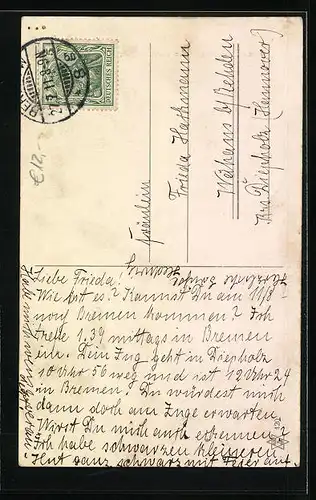 DEUTSCHES REICH
Fräulein
Frieda Hartmann
b/Rehden
Krs Diepholz (Hannover)
Liebe Frieda!
Wie ist es? Kannst Du am 11/8
nach Bremen kommen? Ich
treffe 1.39 mittags in Bremen
ein. Dein Zug geht in Diepholz
10 Uhr 56 weg und ist 12 Uhr 24
in Bremen! Du würdest mich
dann doch am Zuge erwarten.
Wirst Du mich auch erkennen?
Ich habe schwarzen kleineren
Hut ganz schwarz mit Feder auf.
Herzliche